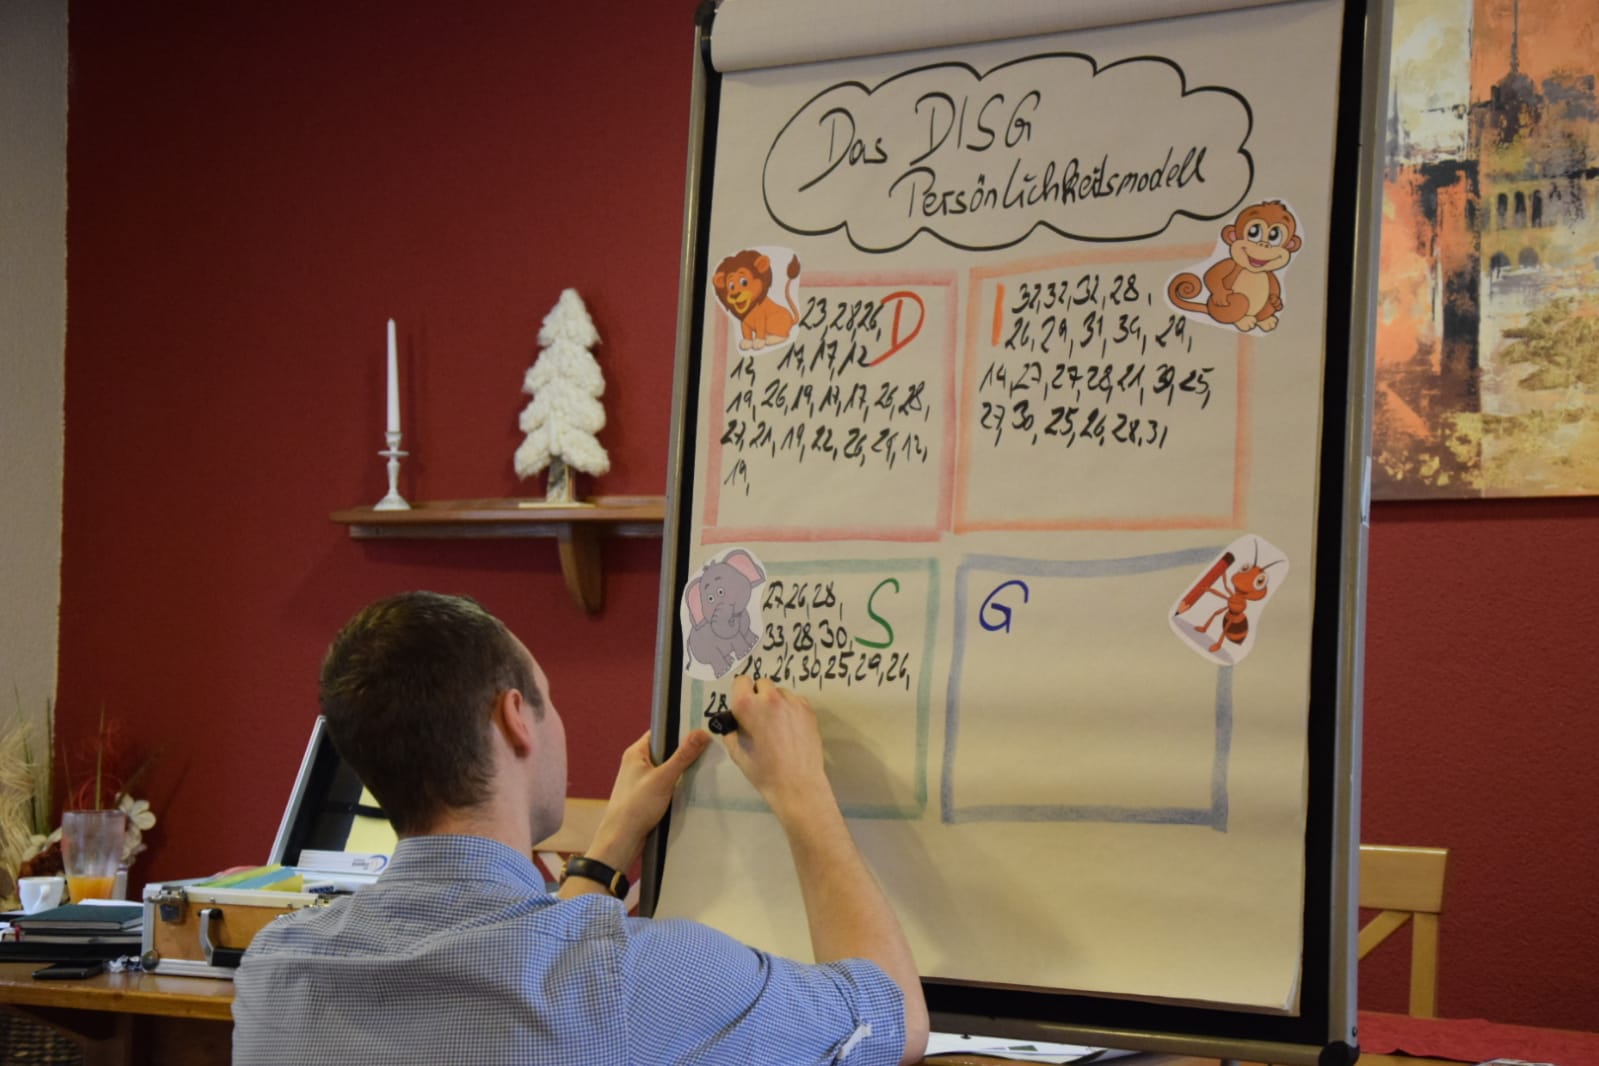 Das DISG
Persönlichkeitsmodell
D
23,28,26,
12, 17,17,12
19,26,19,17,17,26,28,
27,21,19,22,26,29,12,
19,
I
32,32,32,28,
26,29,31,34,29,
14,27,27,28,21,39,25,
27,30,25,26,28,31
S
27,26,28,
33,28,30,
28,26,30,25,29,26,
28
G